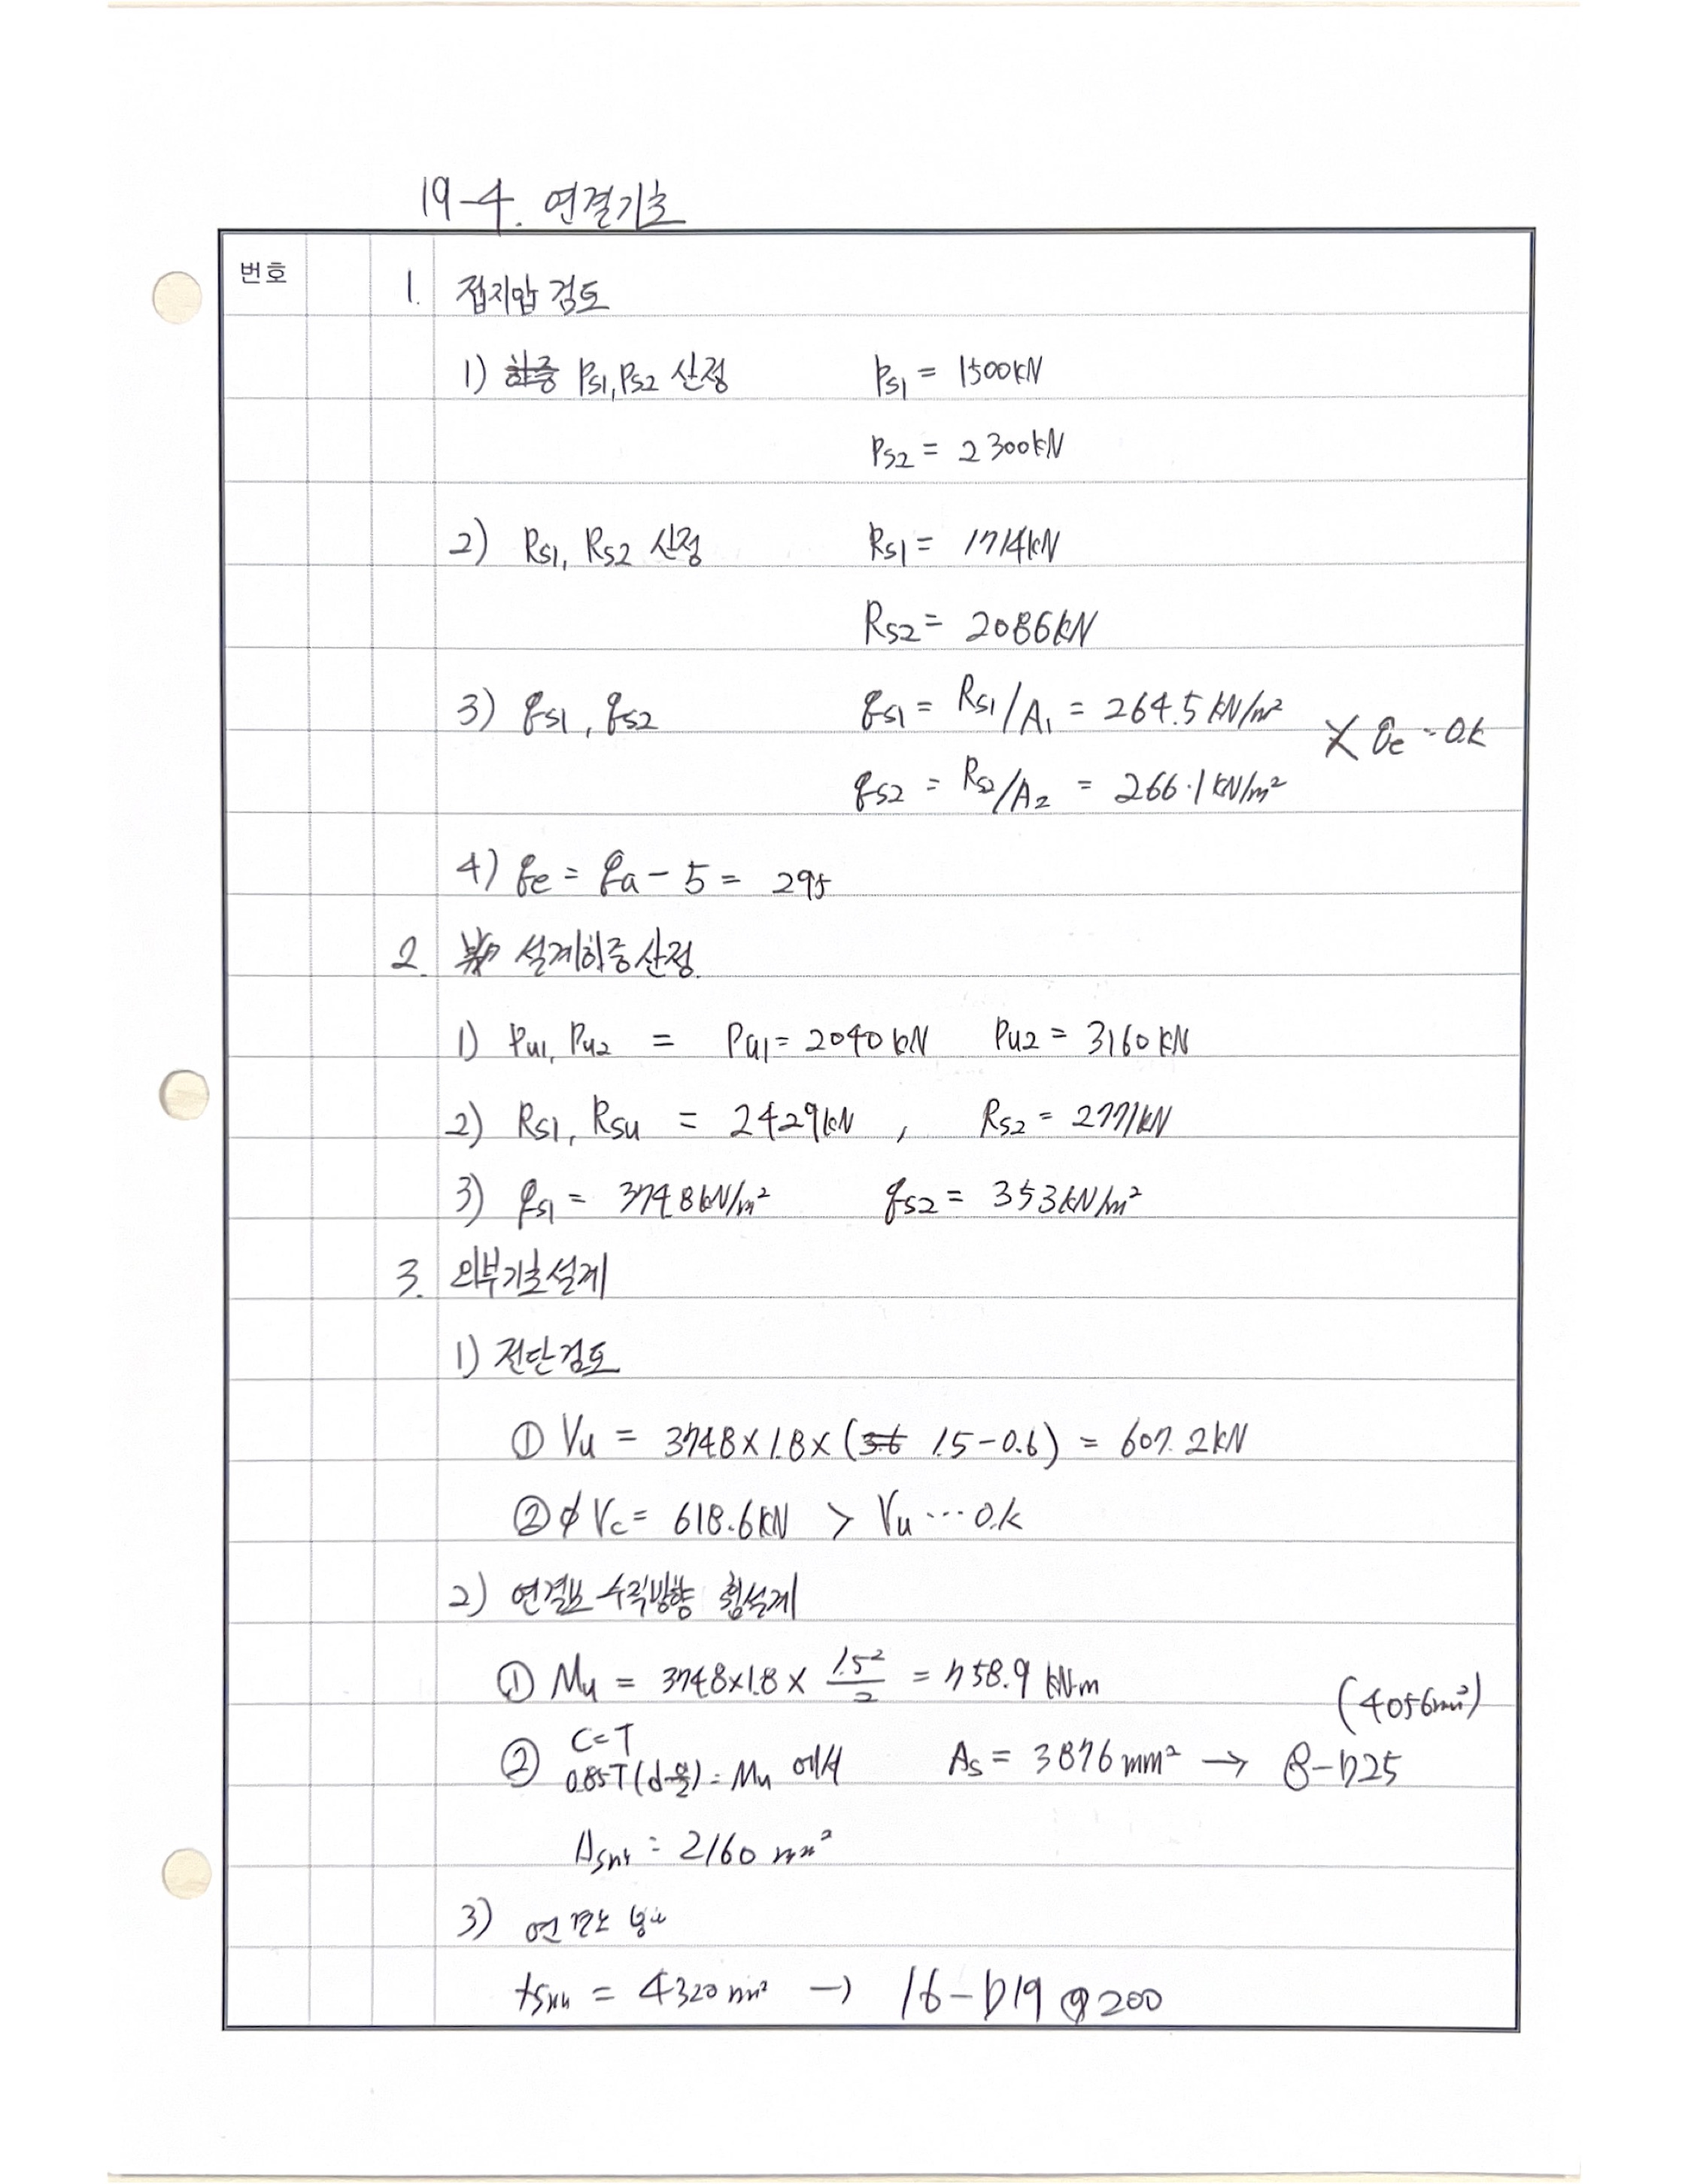 19-4. 연결기초
번호
1. 접지압 검토
1) 하중 Ps1, Ps2 산정 Ps1 = 1500kN
Ps2 = 2300kN
2) Rs1, Rs2 산정 Rs1 = 1714kN
Rs2 = 2086kN
3) qs1, qs2 qs1 = Rs1/A1 = 264.5 kN/m²
qe - O.k
qs2 = Rs2/A2 = 266.1 kN/m²
4) qe = qa - 5 = 295
2. 설계하중산정
1) Pu1, Pu2 = Pu1 = 2040 kN Pu2 = 3160 kN
2) Rs1, Rsu = 2429kN , Rs2 = 2771kN
3) qs1 = 374.8 kN/m² qs2 = 353kN/m²
3. 외부기초설계
1) 전단검토
① Vu = 374.8 × 1.8 × (3.6 1.5 - 0.6) = 607.2kN
② φVc = 618.6kN > Vu ··· O.k
2) 연결보 수직방향 휨설계
① Mu = 374.8×1.8 × 1.5²/2 = 758.9 kN·m
(4056mm²)
② C=T
0.85T(d-a/2) = Mu 에서 As = 3876 mm² → 8-D25
= 2160 mm²
3)
= 4320 mm² → 16-D19 @ 200